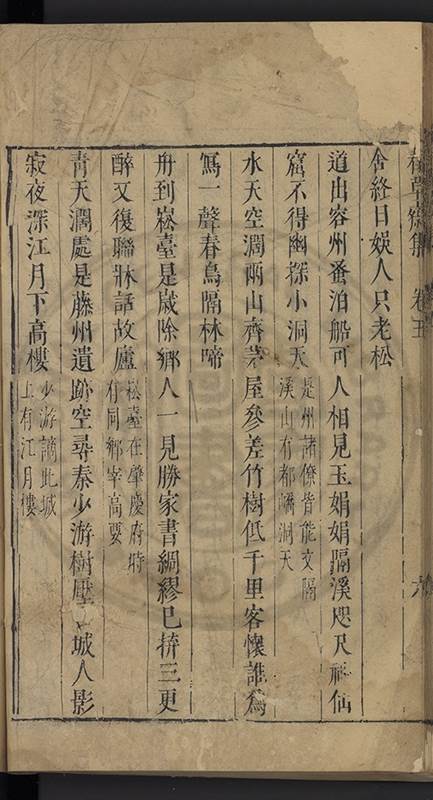 草窗集 卷五 六
舍終日娛人只老松
道出容州蚤泊船可人相見玉娟娟隔溪咫尺神仙
窟不得幽探小洞天是州諸僚皆能文隔溪山有都嶠洞天
水天空濶兩山齊茅屋參差竹樹低千里客懷誰爲
寫一聲春鳥隔林啼
舟到崧臺是歲除鄉人一見勝家書綢繆已拚三更
醉又復聯牀話故廬崧臺在肇慶府時有同鄉宰高要
青天濶處是藤州遺跡空尋秦少游樹壓城人影
寂夜深江月下高樓少游謫此城上有江月樓